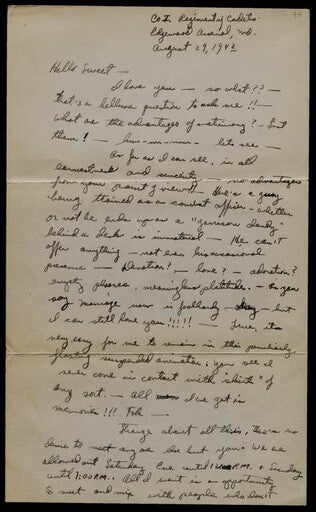 Co. I. Regiment of Cadets.
Edgewood Arsenal, Md.
August 29, 1943
Hello Sweet —
I love you — so what?? —
That's a helluva question to ask me!! —
What are the advantages of matrimony? — Let
them! — hm-m-mm — lets see —
As far as I can see, in all
earnestness and sincerity — no advantages
from your point of view!! Here's a guy
being trained as a combat officer — whether
or not he ends up as a "garrison dandy"
behind a desk is immaterial — He can't
offer anything — not even his occasional
presence — Devotion? — love? — adoration?
empty phrases, meaningless platitudes. — As you
say marriage now is foolhardy — but
I can still love you!!!!! — True, its
very easy for me to remain in this
suspended animation; you see I
never come in contact with "skirts" of
any sort. — All I've got is
memories!!! Tsk —
Strange about all this, there's no
desire to meet anyone else but you. We are
allowed out Saturday Eve until 1:00 A.M. & Sunday
until 7:00 P.M. All I want is an opportunity
to meet and mix with people who don't